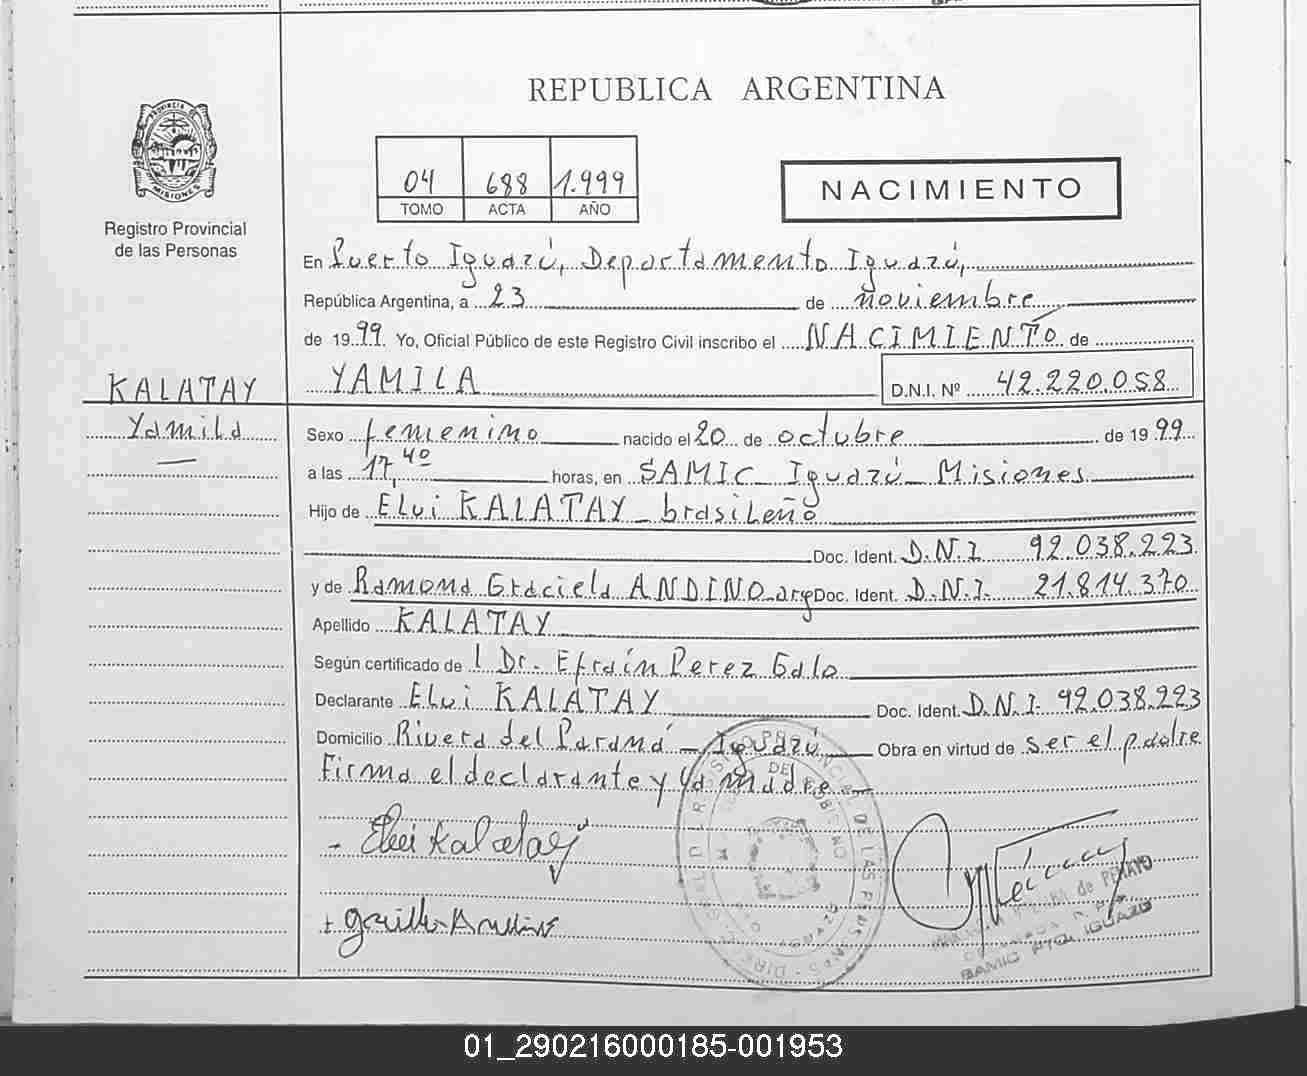 REPUBLICA ARGENTINA
PROVINCIA
MISIONES
Registro Provincial
de las Personas
04 688 1.999
TOMO ACTA AÑO
NACIMIENTO
En Puerto Iguazú, Departamento Iguazú,
República Argentina, a 23 de noviembre
de 1999. Yo, Oficial Público de este Registro Civil inscribo el NACIMIENTO de
YAMILA D.N.I. Nº 42.220.058
KALATAY
Yamila
Sexo femenino nacido el 20 de octubre de 1999
a las 17,40 horas, en SAMIC Iguazú Misiones
Hijo de Elvi KALATAY brasileño
Doc. Ident. D.N.I. 92.038.223
y de Ramona Graciela ANDINO arg Doc. Ident. D.N.I. 21.814.370
Apellido KALATAY
Según certificado de l Dr. Efraín Perez Galo
Declarante Elvi KALATAY Doc. Ident. D.N.I. 92.038.223
Domicilio Rivera del Paraná - Iguazú Obra en virtud de ser el padre
Firma el declarante y la madre
Elvi Kalatay
de PENAYO
SAMIC PTO. IGUAZU
01_290216000185-001953